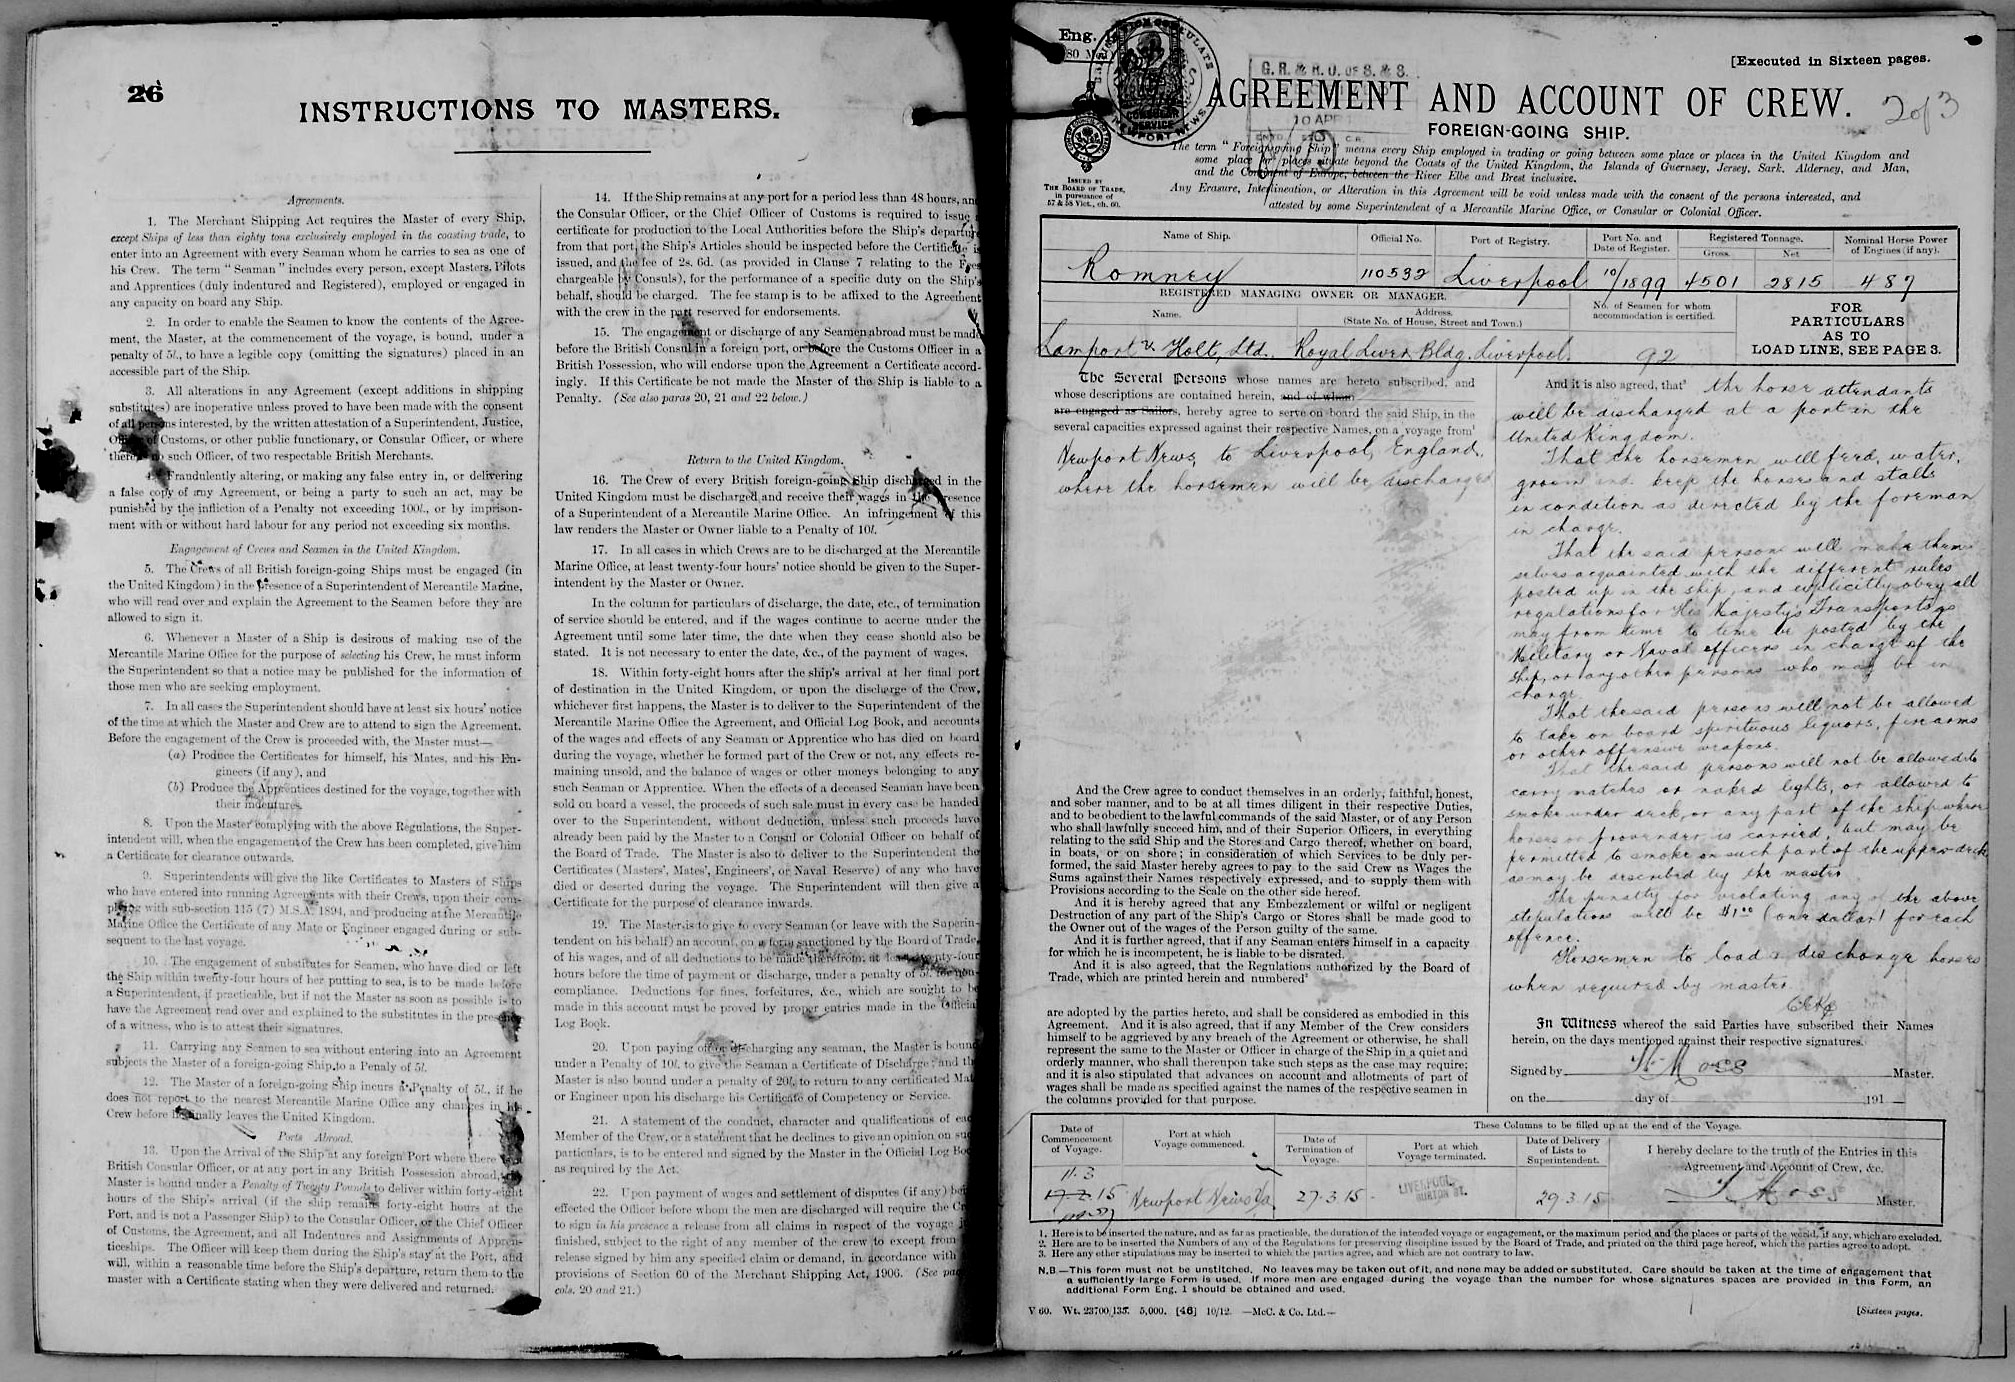 26
INSTRUCTIONS TO MASTERS.
Agreements.
1. The Merchant Shipping Act requires the Master of every Ship,
except Ships of less than eighty tons exclusively employed in the coasting trade, to
enter into an Agreement with every Seaman whom he carries to sea as one of
his Crew. The term "Seaman" includes every person, except Masters, Pilots
and Apprentices (duly indentured and Registered), employed or engaged in
any capacity on board any Ship.
2. In order to enable the Seamen to know the contents of the Agree-
ment, the Master, at the commencement of the voyage, is bound, under a
penalty of 5l., to have a legible copy (omitting the signatures) placed in an
accessible part of the Ship.
3. All alterations in any Agreement (except additions in shipping
substitutes) are inoperative unless proved to have been made with the consent
of all persons interested, by the written attestation of a Superintendent, Justice,
of Customs, or other public functionary, or Consular Officer, or where
there is no such Officer, of two respectable British Merchants.
4. Fraudulently altering, or making any false entry in, or delivering
a false copy of any Agreement, or being a party to such an act, may be
punished by the infliction of a Penalty not exceeding 100l., or by imprison-
ment with or without hard labour for any period not exceeding six months.
Engagement of Crews and Seamen in the United Kingdom.
5. The Crews of all British foreign-going Ships must be engaged (in
the United Kingdom) in the presence of a Superintendent of Mercantile Marine,
who will read over and explain the Agreement to the Seamen before they are
allowed to sign it.
6. Whenever a Master of a Ship is desirous of making use of the
Mercantile Marine Office for the purpose of selecting his Crew, he must inform
the Superintendent so that a notice may be published for the information of
those men who are seeking employment.
7. In all cases the Superintendent should have at least six hours' notice
of the time at which the Master and Crew are to attend to sign the Agreement.
Before the engagement of the Crew is proceeded with, the Master must—
(a) Produce the Certificates for himself, his Mates, and his En-
gineers (if any), and
(b) Produce the Apprentices destined for the voyage, together with
their indentures.
8. Upon the Master complying with the above Regulations, the Super-
intendent will, when the engagement of the Crew has been completed, give him
a Certificate for clearance outwards.
9. Superintendents will give the like Certificates to Masters of Ships
who have entered into running Agreements with their Crews, upon their com-
plying with sub-section 115 (7) M.S.A. 1894, and producing at the Mercantile
Marine Office the Certificate of any Mate or Engineer engaged during or sub-
sequent to the last voyage.
10. The engagement of substitutes for Seamen, who have died or left
the Ship within twenty-four hours of her putting to sea, is to be made before
a Superintendent, if practicable, but if not the Master as soon as possible is to
have the Agreement read over and explained to the substitutes in the presence
of a witness, who is to attest their signatures.
11. Carrying any Seamen to sea without entering into an Agreement
subjects the Master of a foreign-going Ship to a Penaly of 5l.
12. The Master of a foreign-going Ship incurs a Penalty of 5l., if he
does not report to the nearest Mercantile Marine Office any changes in his
Crew before he finally leaves the United Kingdom.
Ports Abroad.
13. Upon the Arrival of the Ship at any foreign Port where there is a
British Consular Officer, or at any port in any British Possession abroad, the
Master is bound under a Penalty of Twenty Pounds to deliver within forty-eight
hours of the Ship's arrival (if the ship remains forty-eight hours at the
Port, and is not a Passenger Ship) to the Consular Officer, or the Chief Officer
of Customs, the Agreement, and all Indentures and Assignments of Appren-
ticeships. The Officer will keep them during the Ship's stay at the Port, and
will, within a reasonable time before the Ship's departure, return them to the
master with a Certificate stating when they were delivered and returned.
14. If the Ship remains at any port for a period less than 48 hours, and
the Consular Officer, or the Chief Officer of Customs is required to issue a
certificate for production to the Local Authorities before the Ship's departure
from that port, the Ship's Articles should be inspected before the Certificate is
issued, and the fee of 2s. 6d. (as provided in Clause 7 relating to the Fees
chargeable by Consuls), for the performance of a specific duty on the Ship's
behalf, should be charged. The fee stamp is to be affixed to the Agreement
with the crew in the part reserved for endorsements.
15. The engagement or discharge of any Seamen abroad must be made
before the British Consul in a foreign port, or before the Customs Officer in a
British Possession, who will endorse upon the Agreement a Certificate accord-
ingly. If this Certificate be not made the Master of the Ship is liable to a
Penalty. (See also paras 20, 21 and 22 below.)
Return to the United Kingdom.
16. The Crew of every British foreign-going Ship discharged in the
United Kingdom must be discharged and receive their wages in the presence
of a Superintendent of a Mercantile Marine Office. An infringement of this
law renders the Master or Owner liable to a Penalty of 10l.
17. In all cases in which Crews are to be discharged at the Mercantile
Marine Office, at least twenty-four hours' notice should be given to the Super-
intendent by the Master or Owner.
In the column for particulars of discharge, the date, etc., of termination
of service should be entered, and if the wages continue to accrue under the
Agreement until some later time, the date when they cease should also be
stated. It is not necessary to enter the date, &c., of the payment of wages.
18. Within forty-eight hours after the ship's arrival at her final port
of destination in the United Kingdom, or upon the discharge of the Crew,
whichever first happens, the Master is to deliver to the Superintendent of the
Mercantile Marine Office the Agreement, and Official Log Book, and accounts
of the wages and effects of any Seaman or Apprentice who has died on board
during the voyage, whether he formed part of the Crew or not, any effects re-
maining unsold, and the balance of wages or other moneys belonging to any
such Seaman or Apprentice. When the effects of a deceased Seaman have been
sold on board a vessel, the proceeds of such sale must in every case be handed
over to the Superintendent, without deduction, unless such proceeds have
already been paid by the Master to a Consul or Colonial Officer on behalf of
the Board of Trade. The Master is also to deliver to the Superintendent the
Certificates (Masters', Mates', Engineers', or Naval Reserve) of any who have
died or deserted during the voyage. The Superintendent will then give a
Certificate for the purpose of clearance inwards.
19. The Master is to give to every Seaman (or leave with the Superin-
tendent on his behalf) an account, on a form sanctioned by the Board of Trade,
of his wages, and of all deductions to be made therefrom, at least twenty-four
hours before the time of payment or discharge, under a penalty of 5l. for non-
compliance. Deductions for fines, forfeitures, &c., which are sought to be
made in this account must be proved by proper entries made in the Official
Log Book.
20. Upon paying off or discharging any seaman, the Master is bound
under a Penalty of 10l. to give the Seaman a Certificate of Discharge; and the
Master is also bound under a penalty of 20l. to return to any certificated Mate
or Engineer upon his discharge his Certificate of Competency or Service.
21. A statement of the conduct, character and qualifications of each
Member of the Crew, or a statement that he declines to give an opinion on such
particulars, is to be entered and signed by the Master in the Official Log Book
as required by the Act.
22. Upon payment of wages and settlement of disputes (if any) before
effected the Officer before whom the men are discharged will require the Crew
to sign in his presence a release from all claims in respect of the voyage
finished, subject to the right of any member of the crew to except from
release signed by him any specified claim or demand, in accordance with
provisions of Section 60 of the Merchant Shipping Act, 1906. (See page
cols. 20 and 21.)
Eng. 1.
[Executed in Sixteen pages.
G. R. & R. O. OF S. & S.
10 APR
CONSULAR SERVICE
NEWPORT NEWS
AGREEMENT AND ACCOUNT OF CREW.
2 of 3
FOREIGN-GOING SHIP.
The term "Foreign-going Ship" means every Ship employed in trading or going between some place or places in the United Kingdom and
some place or places situate beyond the Coasts of the United Kingdom, the Islands of Guernsey, Jersey, Sark, Alderney, and Man,
and the Continent of Europe, between the River Elbe and Brest inclusive.
Any Erasure, Interlineation, or Alteration in this Agreement will be void unless made with the consent of the persons interested, and
attested by some Superintendent of a Mercantile Marine Office, or Consular or Colonial Officer.
ISSUED BY
THE BOARD OF TRADE,
in pursuance of
57 & 58 Vict., ch. 60.
Name of Ship. Official No. Port of Registry. Port No. and Date of Register. Registered Tonnage. Gross. Net. Nominal Horse Power of Engines (if any).
Romney 110532 Liverpool 10/1899 4501 2815 487
REGISTERED MANAGING OWNER OR MANAGER.
Name. Address. (State No. of House, Street and Town.) No. of Seamen for whom accommodation is certified.
FOR
PARTICULARS
AS TO
LOAD LINE, SEE PAGE 3.
Lamport & Holt, Ltd. Royal Liver Bldg. Liverpool. 92
The Several Persons whose names are hereto subscribed, and
whose descriptions are contained herein, and of whom
are engaged as Sailors, hereby agree to serve on board the said Ship, in the
several capacities expressed against their respective Names, on a voyage from¹
Newport News to Liverpool, England,
where the horsemen will be discharged
And the Crew agree to conduct themselves in an orderly, faithful, honest,
and sober manner, and to be at all times diligent in their respective Duties,
and to be obedient to the lawful commands of the said Master, or of any Person
who shall lawfully succeed him, and of their Superior Officers, in everything
relating to the said Ship and the Stores and Cargo thereof, whether on board,
in boats, or on shore; in consideration of which Services to be duly per-
formed, the said Master hereby agrees to pay to the said Crew as Wages the
Sums against their Names respectively expressed, and to supply them with
Provisions according to the Scale on the other side hereof.
And it is hereby agreed that any Embezzlement or wilful or negligent
Destruction of any part of the Ship's Cargo or Stores shall be made good to
the Owner out of the wages of the Person guilty of the same.
And it is further agreed, that if any Seaman enters himself in a capacity
for which he is incompetent, he is liable to be disrated.
And it is also agreed, that the Regulations authorized by the Board of
Trade, which are printed herein and numbered²
are adopted by the parties hereto, and shall be considered as embodied in this
Agreement. And it is also agreed, that if any Member of the Crew considers
himself to be aggrieved by any breach of the Agreement or otherwise, he shall
represent the same to the Master or Officer in charge of the Ship in a quiet and
orderly manner, who shall thereupon take such steps as the case may require;
and it is also stipulated that advances on account and allotments of part of
wages shall be made as specified against the names of the respective seamen in
the columns provided for that purpose.
And it is also agreed, that³ the horse attendants
will be discharged at a port in the
United Kingdom.
That the horsemen will feed, water,
groom and keep the horses and stalls
in condition as directed by the foreman
in charge.
That the said persons will make them
selves acquainted with the different rules
posted up in the ship, and explicitly obey all
regulations for His Majesty's Transports as
may from time to time be posted by the
Military or Naval officers in charge of the
ship, or any other persons who may be in
charge.
That the said persons will not be allowed
to take on board spirituous liquors, firearms
or other offensive weapons.
That the said persons will not be allowed to
carry matches or naked lights, or allowed to
smoke under deck, or any part of the ship where
horses or provender is carried, but may be
permitted to smoke on such part of the upper deck
as may be described by the master.
The penalty for violating any of the above
stipulations will be $1.00 (one dollar) for each
offence.
Horsemen to load & discharge horses
when required by master.
In Witness whereof the said Parties have subscribed their Names
herein, on the days mentioned against their respective signatures.
Signed by Moss Master.
on the day of 191
Date of Commencement of Voyage. Port at which Voyage commenced. These Columns to be filled up at the end of the Voyage.
Date of Termination of Voyage. Port at which Voyage terminated. Date of Delivery of Lists to Superintendent. I hereby declare to the truth of the Entries in this Agreement and Account of Crew, &c.
11.3
15 Newport News Va 27.3.15 LIVERPOOL BURTON ST. 29.3.15 Moss Master.
1. Here is to be inserted the nature, and as far as practicable, the duration of the intended voyage or engagement, or the maximum period and the places or parts of the world, if any, which are excluded.
2. Here are to be inserted the Numbers of any of the Regulations for preserving discipline issued by the Board of Trade, and printed on the third page hereof, which the parties agree to adopt.
3. Here any other stipulations may be inserted to which the parties agree, and which are not contrary to law.
N.B.—This form must not be unstitched. No leaves may be taken out of it, and none may be added or substituted. Care should be taken at the time of engagement that
a sufficiently large Form is used. If more men are engaged during the voyage than the number for whose signatures spaces are provided in this Form, an
additional Form Eng. 1 should be obtained and used.
V 60. Wt. 23700/135. 5,000. [46] 10/12. —McC. & Co. Ltd.—
[Sixteen pages.